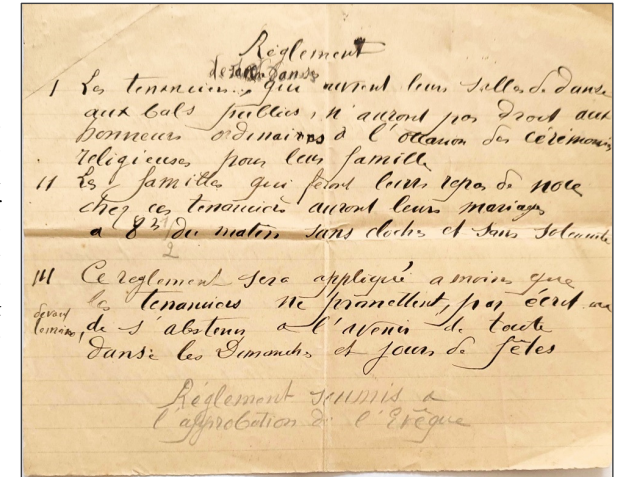 Règlement
de danse
I Les tenanciers qui ouvrent leurs salles de danse
aux bals publics, n'auront pas droit aux
honneurs ordinaires à l'occasion des cérémonies
religieuses pour leur famille
II Les familles qui feront leurs repas de noce
chez ces tenanciers auront leurs mariages
a 8h 1/2 du matin sans cloches et sans solennité
III Ce reglement sera appliqué a moins que
les tenanciers ne promettent, par écrit
devant
de s'abstenir a l'avenir de toute
danse les Dimanches et jours de fêtes
Réglement soumis a
l'approbation de l'Evêque